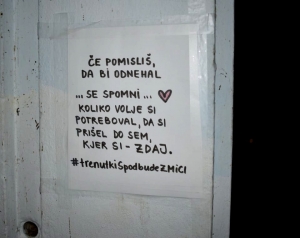 ČE POMISLIŠ,
DA BI ODNEHAL
... SE SPOMNI ...
KOLIKO VOLJE SI
POTREBOVAL, DA SI
PRIŠEL DO SEM,
KJER SI - ZDAJ.
#trenutkiSpodbudeZMICI